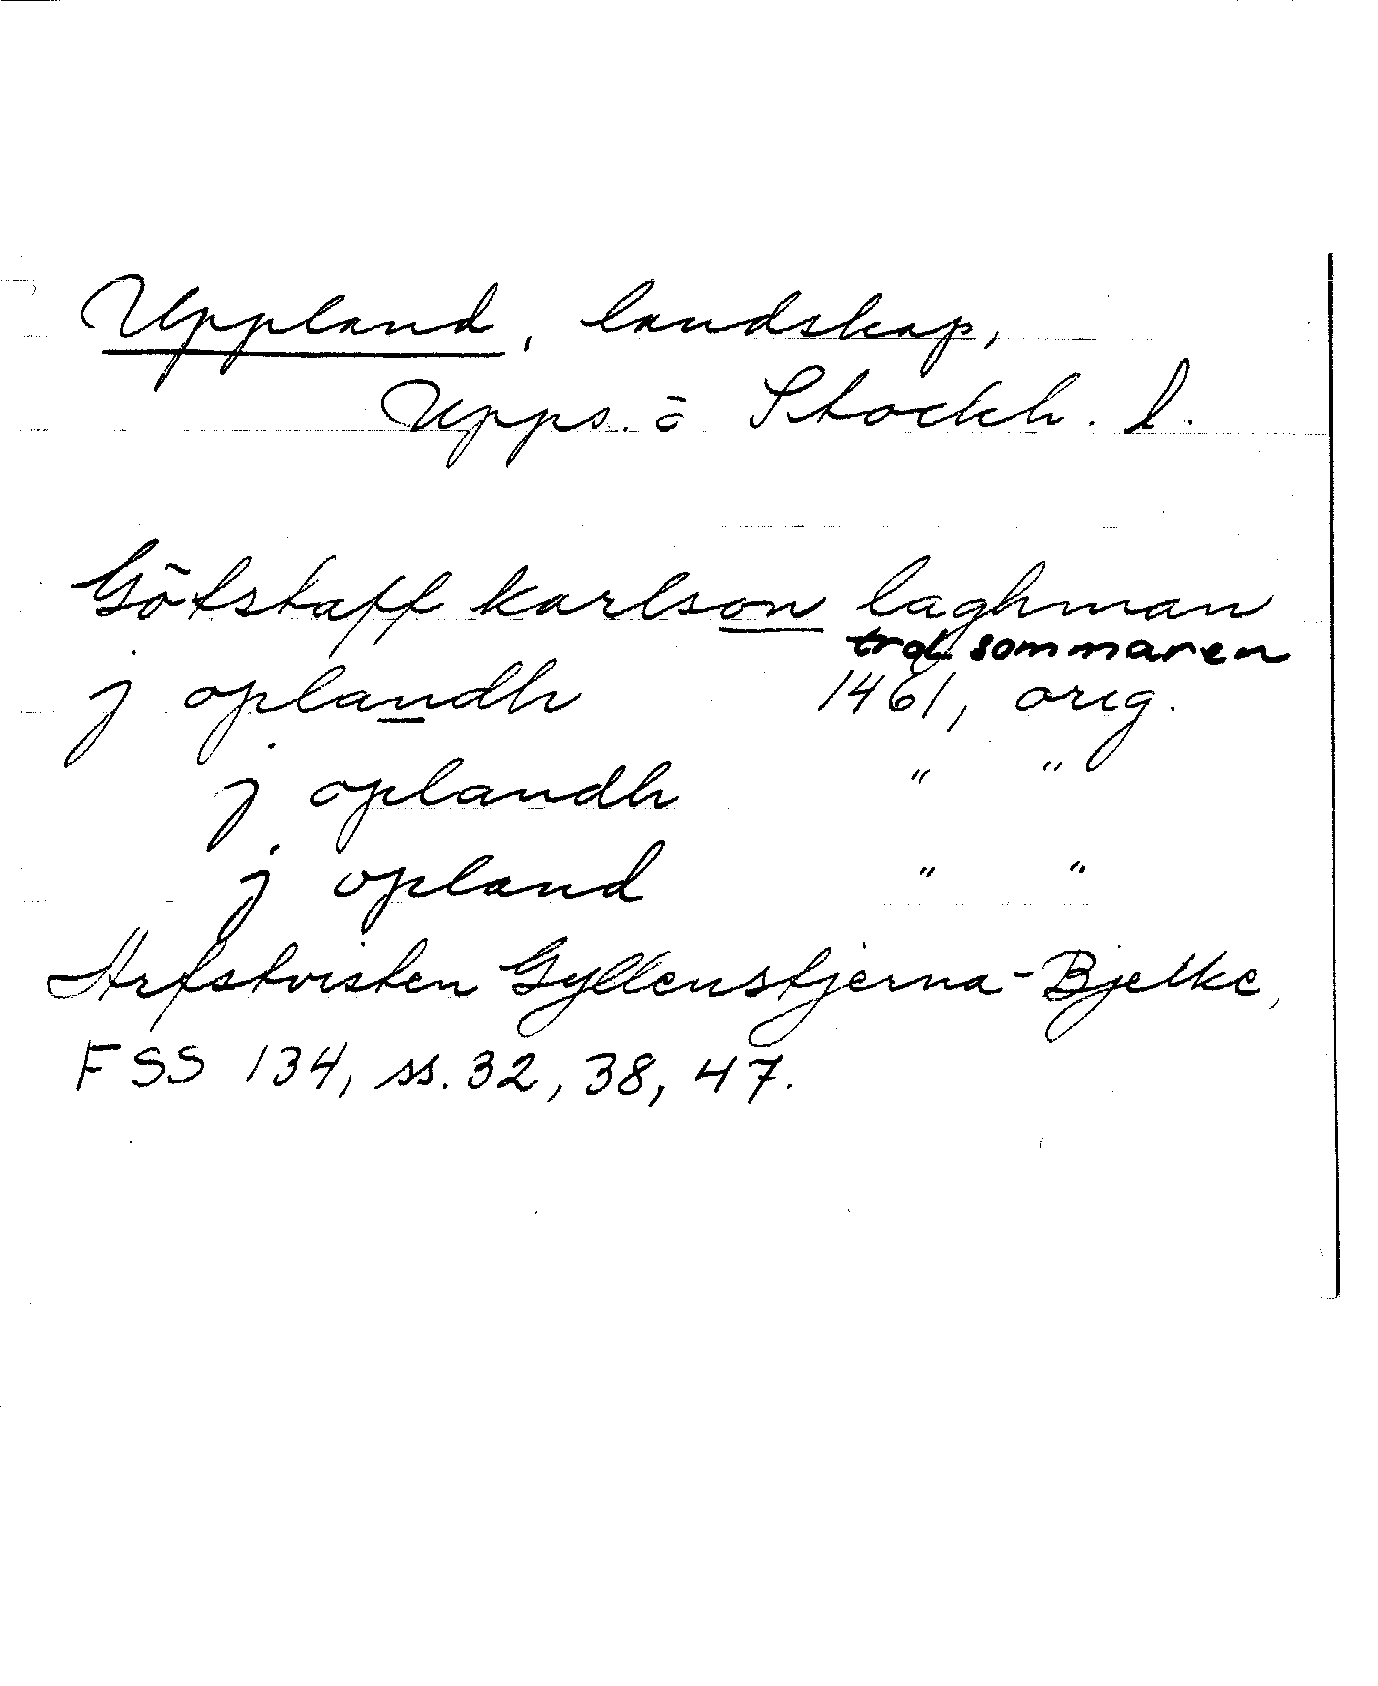 Uppland, landskap,
Upps. o Stockh. l.
Götstaff karlson laghman
trol sommaren
j oplandh 1461, orig.
j oplandh " "
j opland " "
Arfstvisten Gyllenstjerna-Bjelke,
FSS 134, ss. 32, 38, 47.